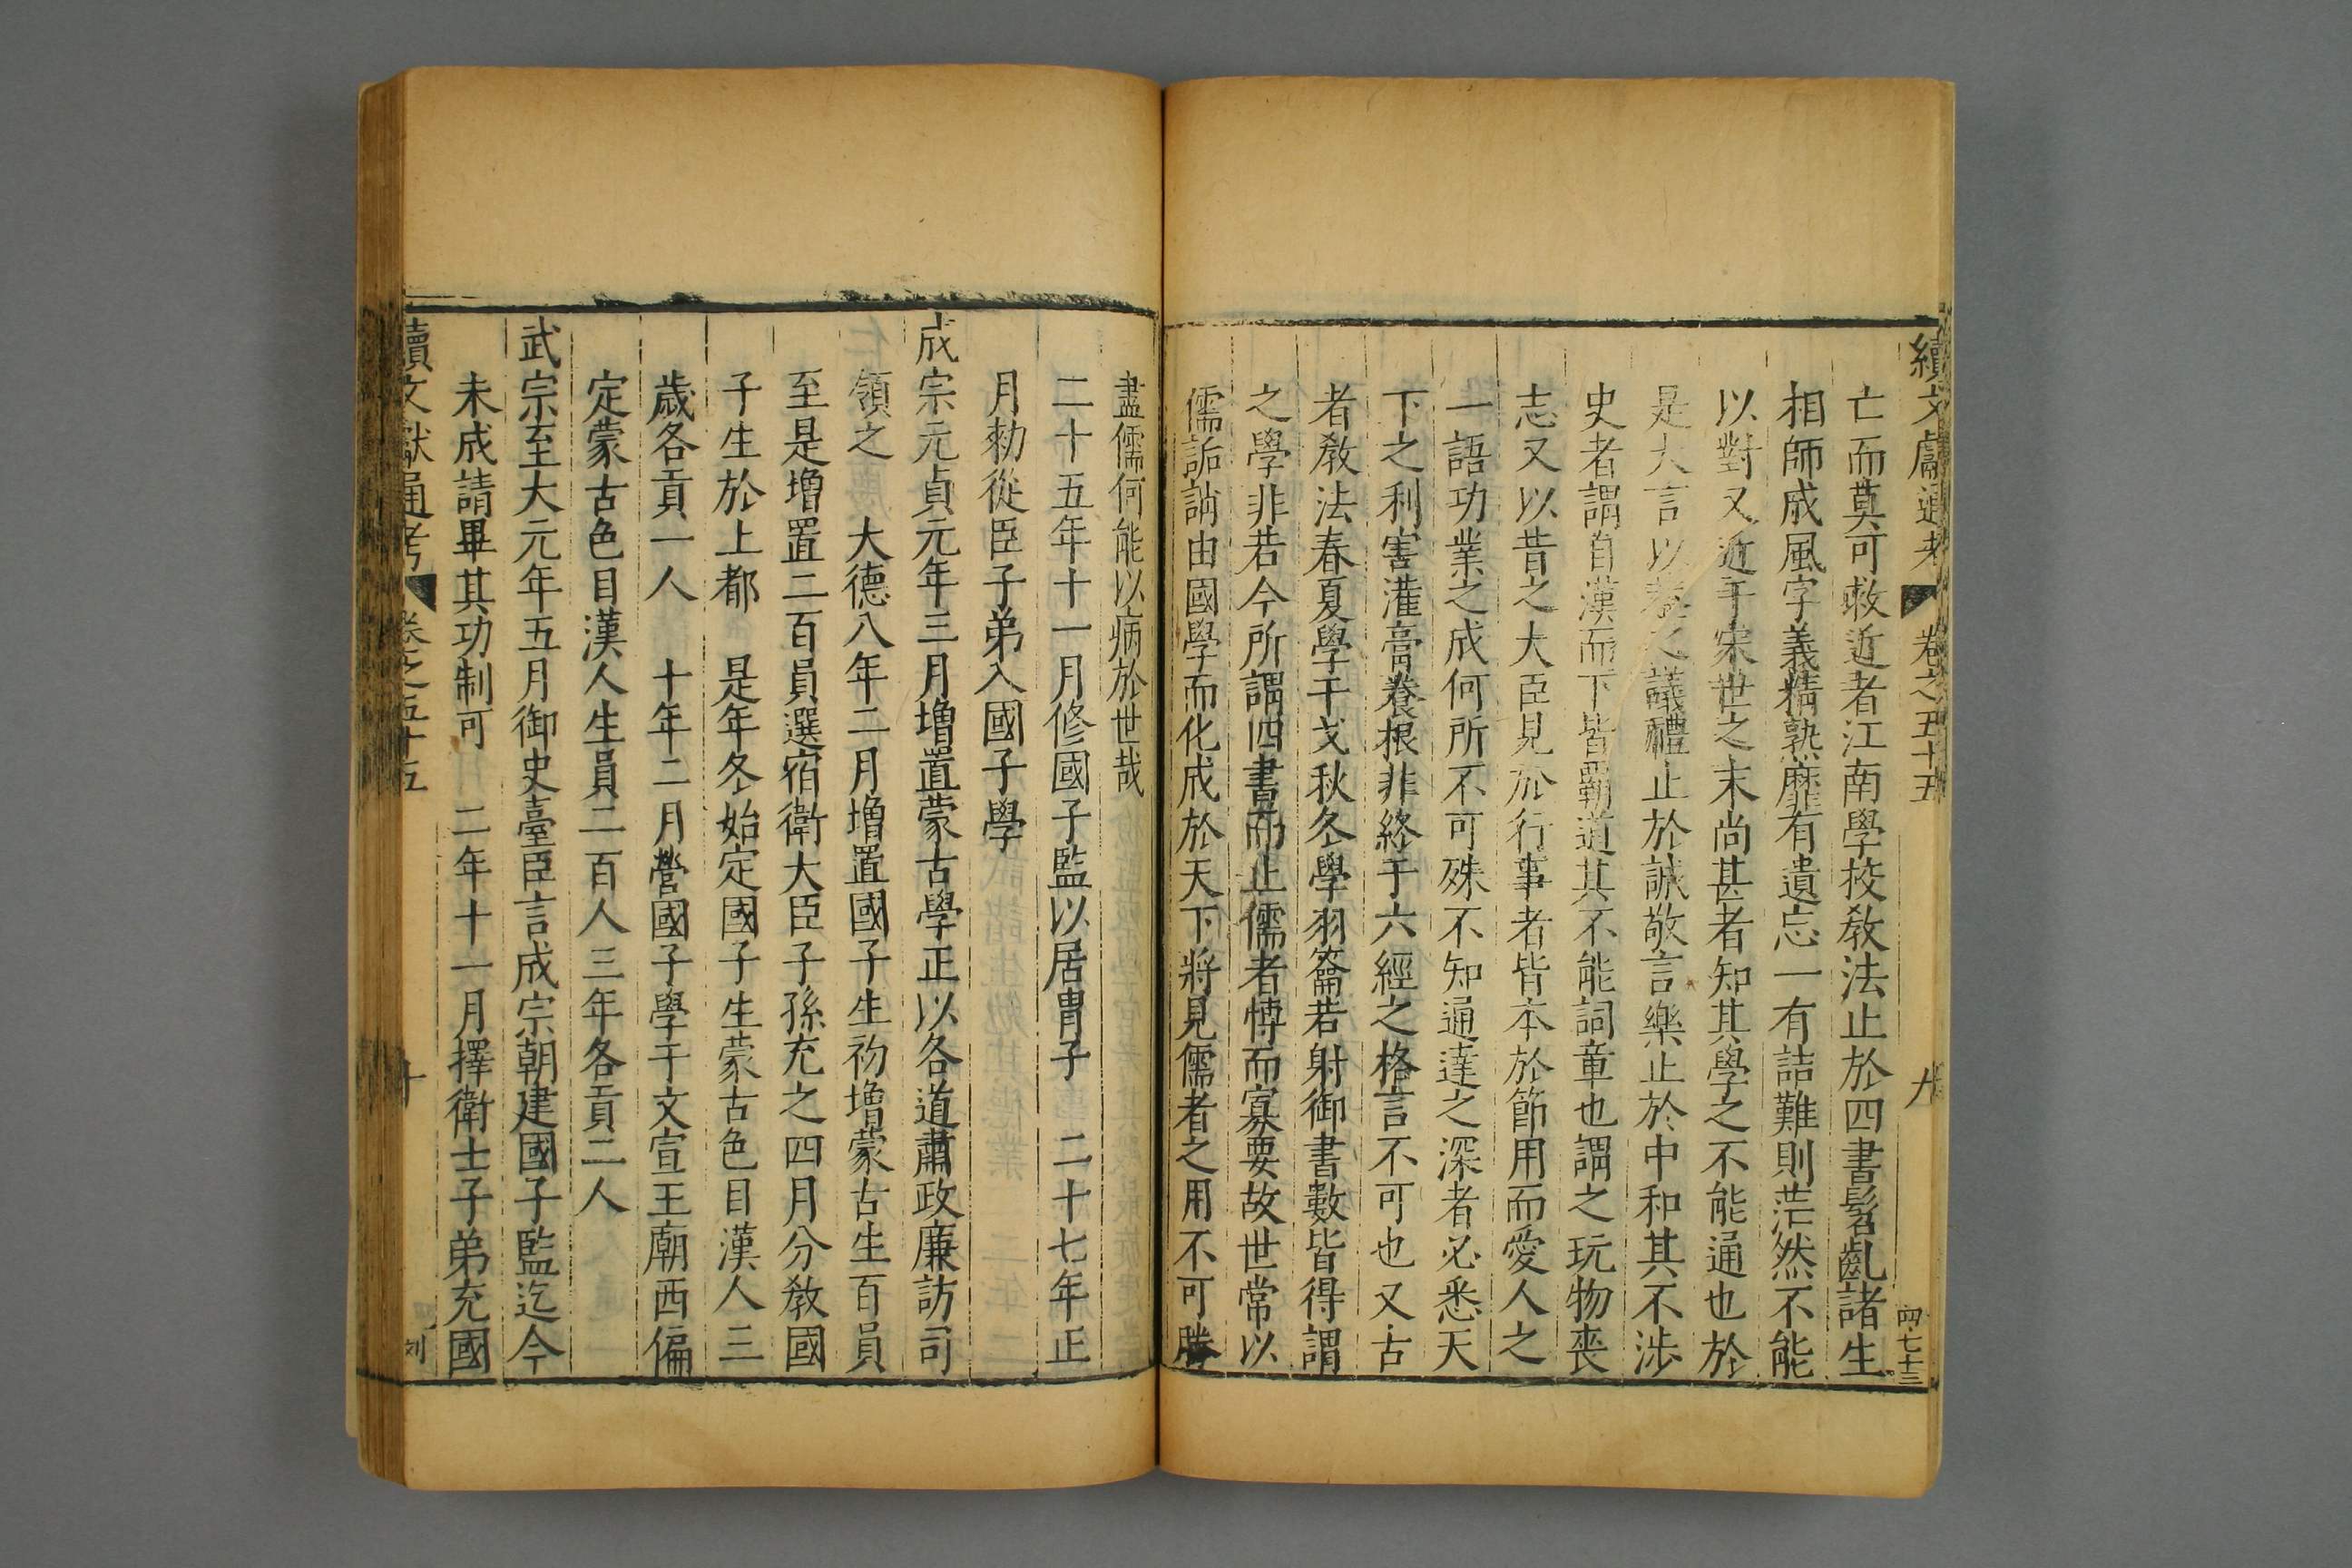 續文獻通考 卷之五十五 九 四七十三
亡而莫可救近者江南學校敎法止於四書髫齓諸生
相師成風字義精熟蔑有遺忘一有詰難則茫然不能
以對又近乎宋世之末尚甚者知其學之不能通也於
是大言以蓋之議禮止於誠敬言樂止於中和其不涉
史者謂自漢而下皆覇道其不能詞章也謂之玩物喪
志又以昔之大臣見於行事者皆本於節用而愛人之
一語功業之成何所不可殊不知通達之深者必悉天
下之利害灌膏養根非終于六經之格言不可也又古
者敎法春夏學干戈秋冬學羽籥若射御書數皆得謂
之學非若今所謂四書而止儒者博而寡要故世常以
儒詬誚由國學而化成於天下將見儒者之用不可勝
盡儒何能以病於世哉
二十五年十一月修國子監以居胄子 二十七年正
月勑從臣子弟入國子學
成宗元貞元年三月增置蒙古學正以各道肅政廉訪司
領之 大德八年二月增置國子生初增蒙古生百員
至是增置二百員選宿衛大臣子孫充之四月分敎國
子生於上都 是年冬始定國子生蒙古色目漢人三
歲各貢一人 十年二月營國子學于文宣王廟西偏
定蒙古色目漢人生員二百人三年各貢二人
武宗至大元年五月御史臺臣言成宗朝建國子監迄今
未成請畢其功制可 二年十一月擇衛士子弟充國
續文獻通考 卷之五十五 十 刘